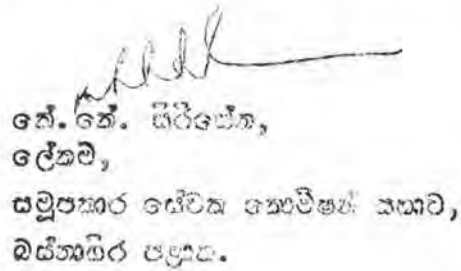 කේ. කේ. සිරිසේන,
ලේකම්,
සමූපකාර සේවක කොමිෂන් සභාව,
බස්නාහිර පළාත.